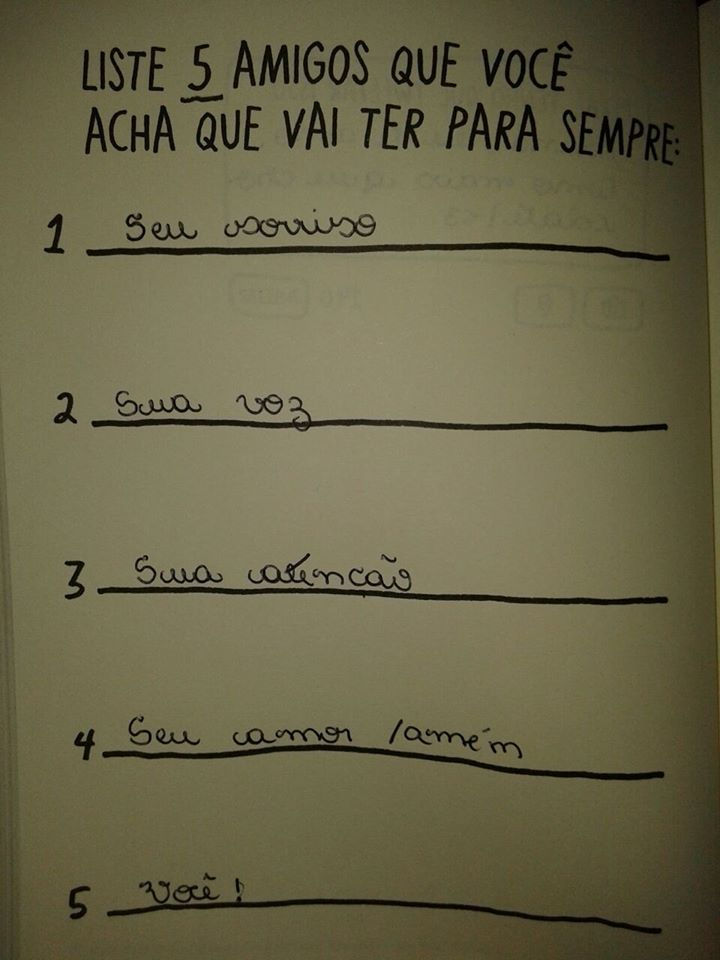 LISTE 5 AMIGOS QUE VOCÊ
ACHA QUE VAI TER PARA SEMPRE:
1 Seu sorriso
2 Sua voz
3 Sua atenção
4 Seu amor /amém
5 Você!